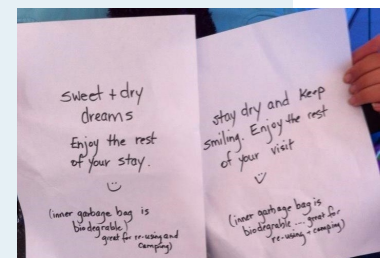 sweet + dry
dreams
Enjoy the rest
of your stay.
(inner garbage bag is
biodegrable)
great for re-using and
camping)
stay dry and keep
smiling. Enjoy the rest
of your visit
(inner garbage bag is
biodegrable .... great for
re-using + camping)